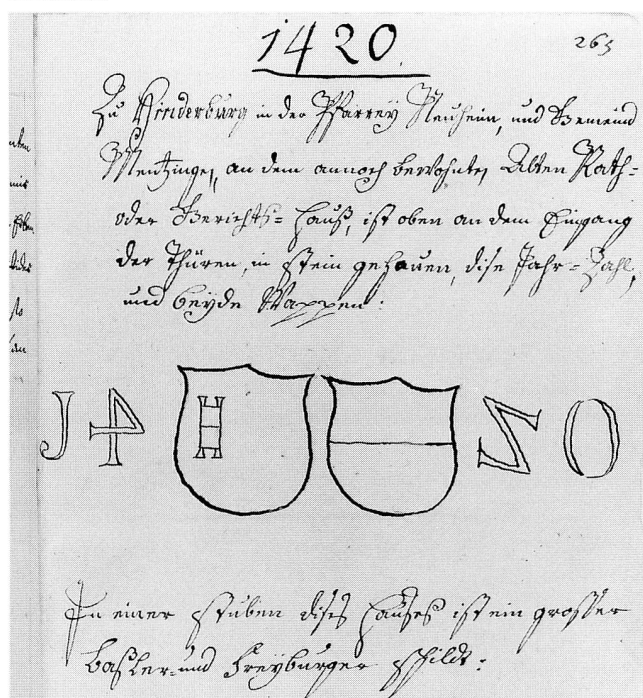 1420.
265
Zu Hinderburg in der Pfarrey Neuheim, und Gemeind
Mentzingen, an dem annoch bewohnten Alten Rath-
oder Gerichts-Hauß, ist oben an dem Eingang
der Thüren, in Stein gehauen, dise Jahr-Zahl,
und beyde Wappen:
J4 20
In einer Stuben dises Hauses ist ein grosser
Baßler- und Freyburger Schildt: